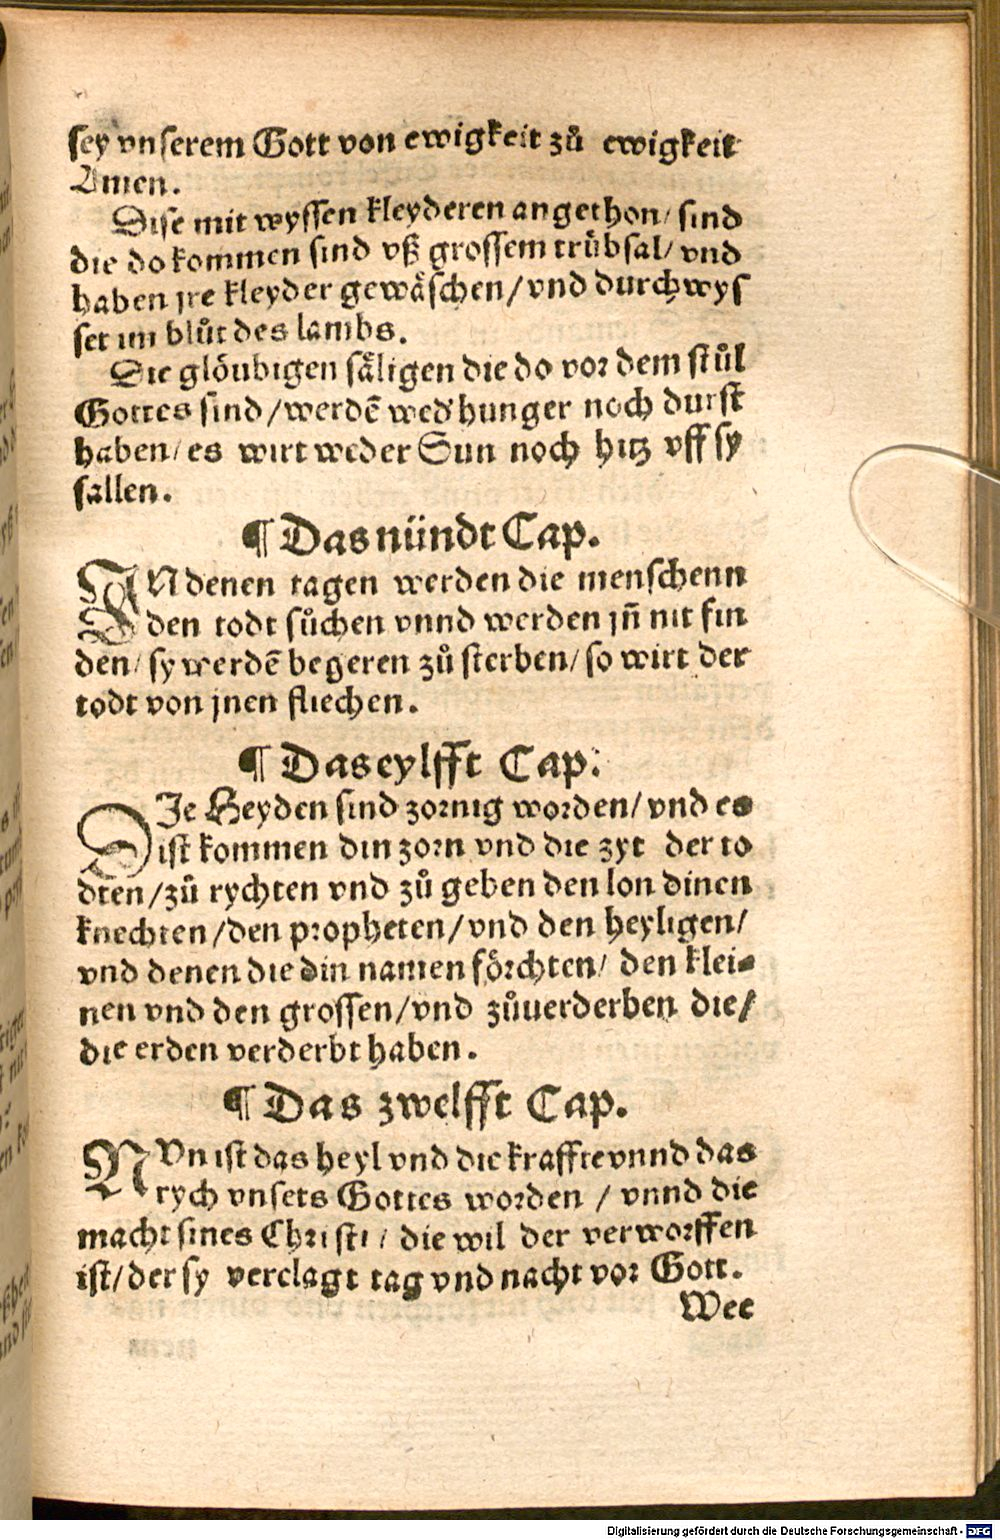 sey vnserem Gott von ewigkeit zů ewigkeit
Amen.
Dise mit wyssen kleyderen angethon/ sind
die do kommen sind vß grossem trübsal/ vnd
haben jre kleyder gewäschen/ vnd durchwys
set im blůt des lambs.
Die glöubigen säligen die do vor dem stůl
Gottes sind/ werdē wed' hunger noch durst
haben/ es wirt weder Sun noch hitz vff sy
fallen.
¶ Das nündt Cap.
IN denen tagen werden die menschenn
den todt sůchen vnnd werden jn̄ nit fin
den/ sy werdē begeren zů sterben/ so wirt der
todt von jnen fliechen.
¶ Das eylfft Cap.
DIe Heyden sind zornig worden/ vnd es
ist kommen din zorn vnd die zyt der to
dten/ zů rychten vnd zů geben den lon dinen
knechten/ den propheten/ vnd den heyligen/
vnd denen die din namen förchten/ den klei⸗
nen vnd den grossen/ vnd zůuerderben die/
die erden verderbt haben.
¶ Das zwelfft Cap.
NVn ist das heyl vnd die kraffte vnnd das
rych vnsets Gottes worden / vnnd die
macht sines Christi / die wil der verworffen
ist/ der sy verclagt tag vnd nacht vor Gott.
Wee
Digitalisierung gefördert durch die Deutsche Forschungsgemeinschaft - DFG